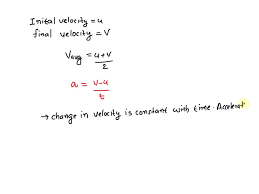 Initial velocity = u
final velocity = V
Vavg = u+v/2
a = v-u/t
→ change in velocity is constant with time. Accelerat